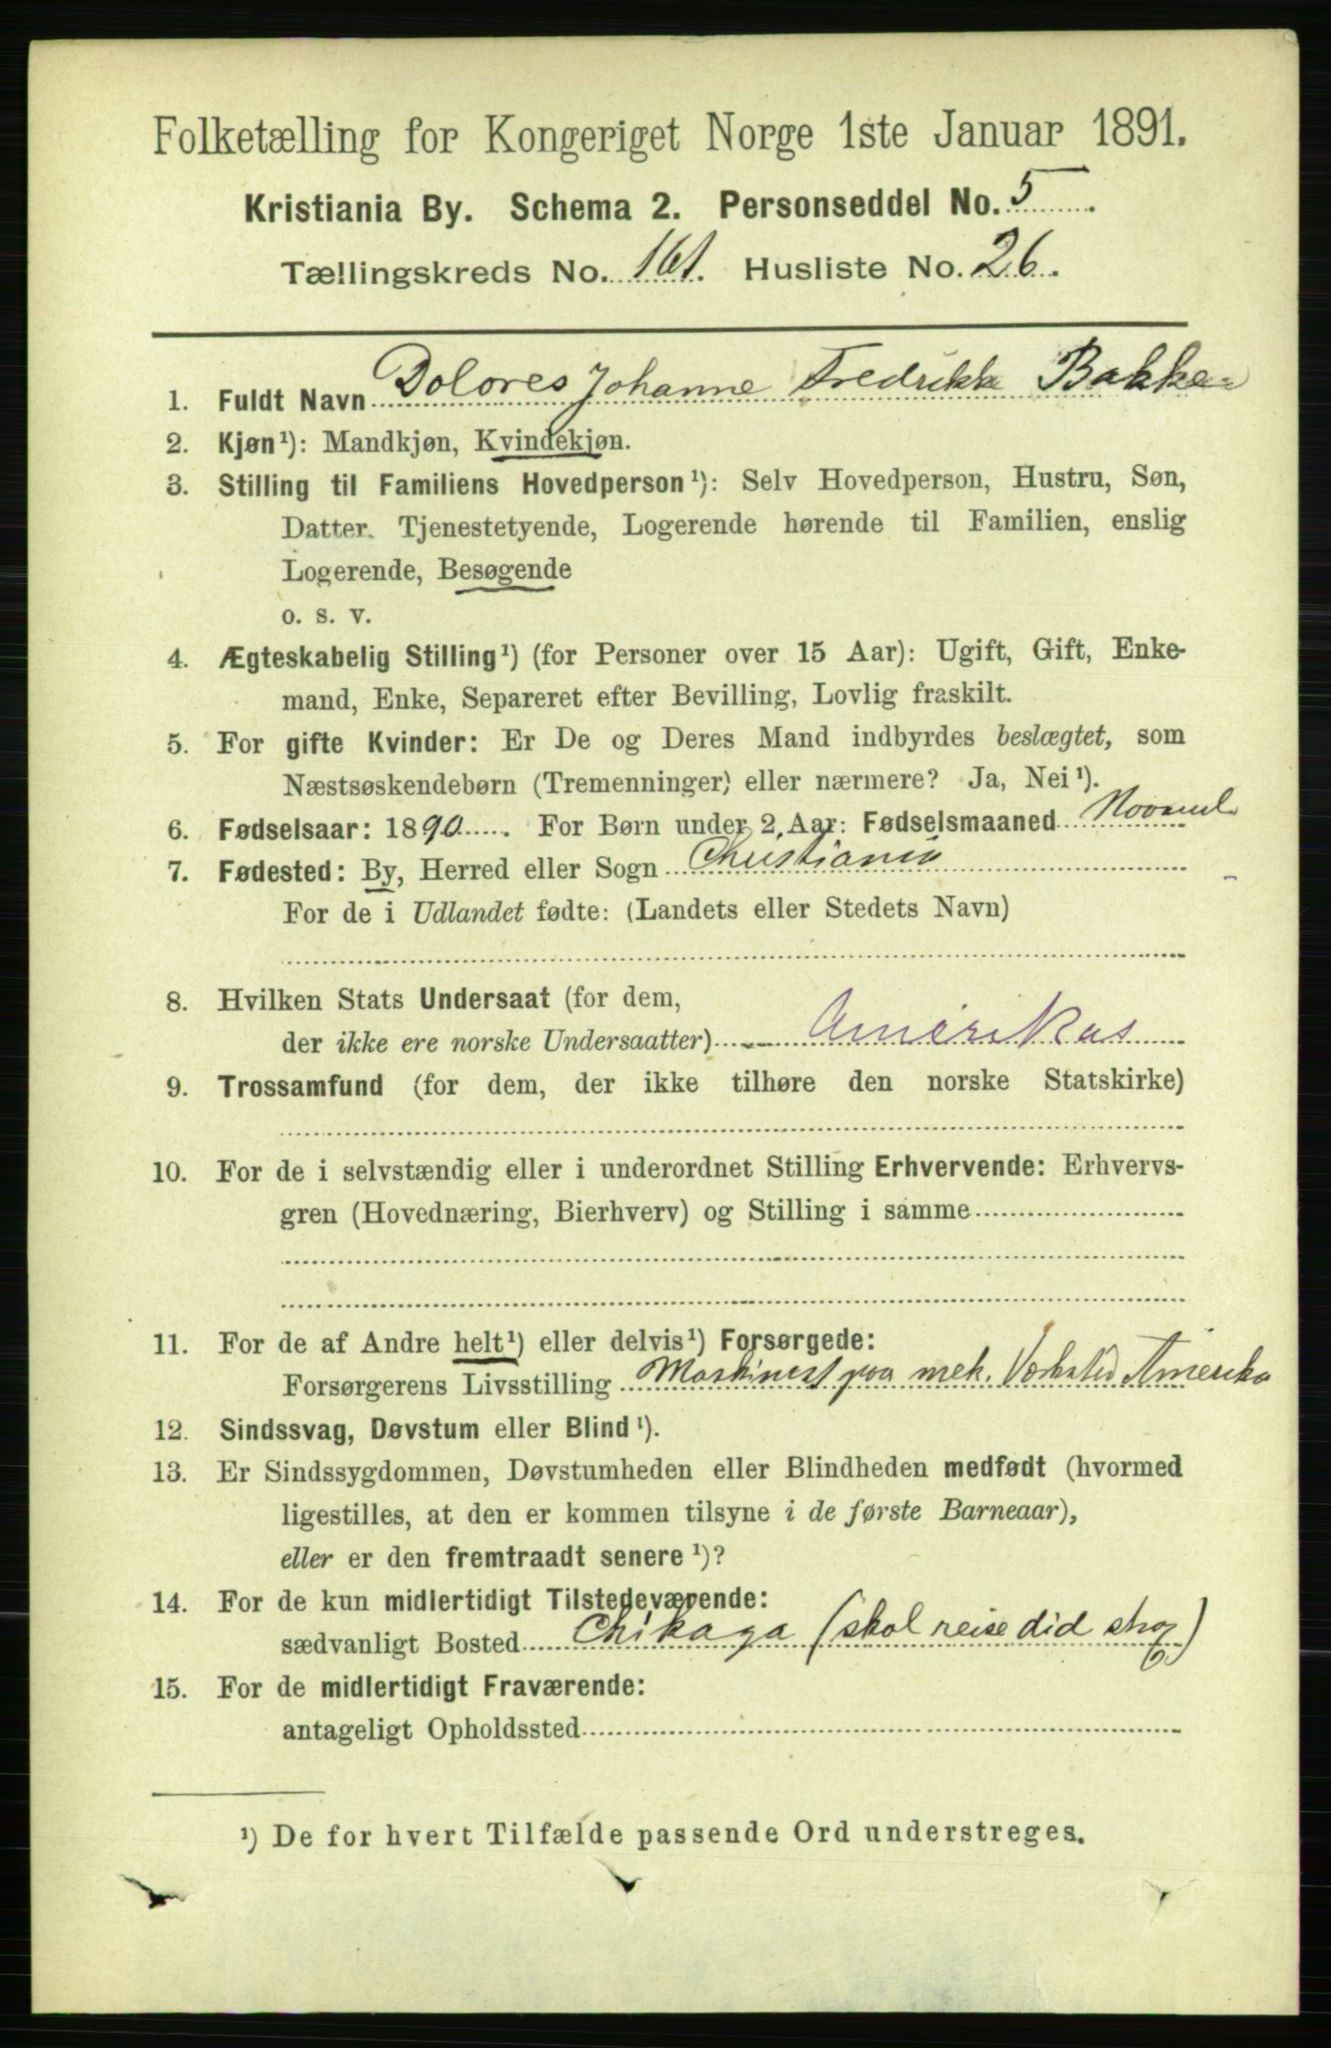 Folketælling for Kongeriget Norge 1ste Januar 1891.
Kristiania By. Schema 2. Personseddel No. 5
Tællingskreds No. 161. Husliste No. 26.
1. Fuldt Navn Dolores Johanne Fredrikke Bakken
2. Kjøn¹): Mandkjøn, Kvindekjøn.
3. Stilling til Familiens Hovedperson¹): Selv Hovedperson, Hustru, Søn,
Datter. Tjenestetyende, Logerende hørende til Familien, enslig
Logerende, Besøgende
o. s. v.
4. Ægteskabelig Stilling¹) (for Personer over 15 Aar): Ugift, Gift, Enke-
mand, Enke, Separeret efter Bevilling, Lovlig fraskilt.
5. For gifte Kvinder: Er De og Deres Mand indbyrdes beslægtet, som
Næstsøskendebørn (Tremenninger) eller nærmere? Ja, Nei¹).
6. Fødselsaar: 1890. For Børn under 2 Aar: Fødselsmaaned
7. Fødested: By, Herred eller Sogn Christiania
For de i Udlandet fødte: (Landets eller Stedets Navn)
8. Hvilken Stats Undersaat (for dem,
der ikke ere norske Undersaatter) Amerikas
9. Trossamfund (for dem, der ikke tilhøre den norske Statskirke)
10. For de i selvstændig eller i underordnet Stilling Erhvervende: Erhvervs-
gren (Hovednæring, Bierhverv) og Stilling i samme
11. For de af Andre helt¹) eller delvis¹) Forsørgede:
Forsørgerens Livsstilling Maskinist paa mek. Værksted Amerika
12. Sindssvag, Døvstum eller Blind¹).
13. Er Sindssygdommen, Døvstumheden eller Blindheden medfødt (hvormed
ligestilles, at den er kommen tilsyne i de første Barneaar),
eller er den fremtraadt senere¹)?
14. For de kun midlertidigt Tilstedeværende:
sædvanligt Bosted Chikaga (skal reise did strax)
15. For de midlertidigt Fraværende:
antageligt Opholdssted
¹) De for hvert Tilfælde passende Ord understreges.